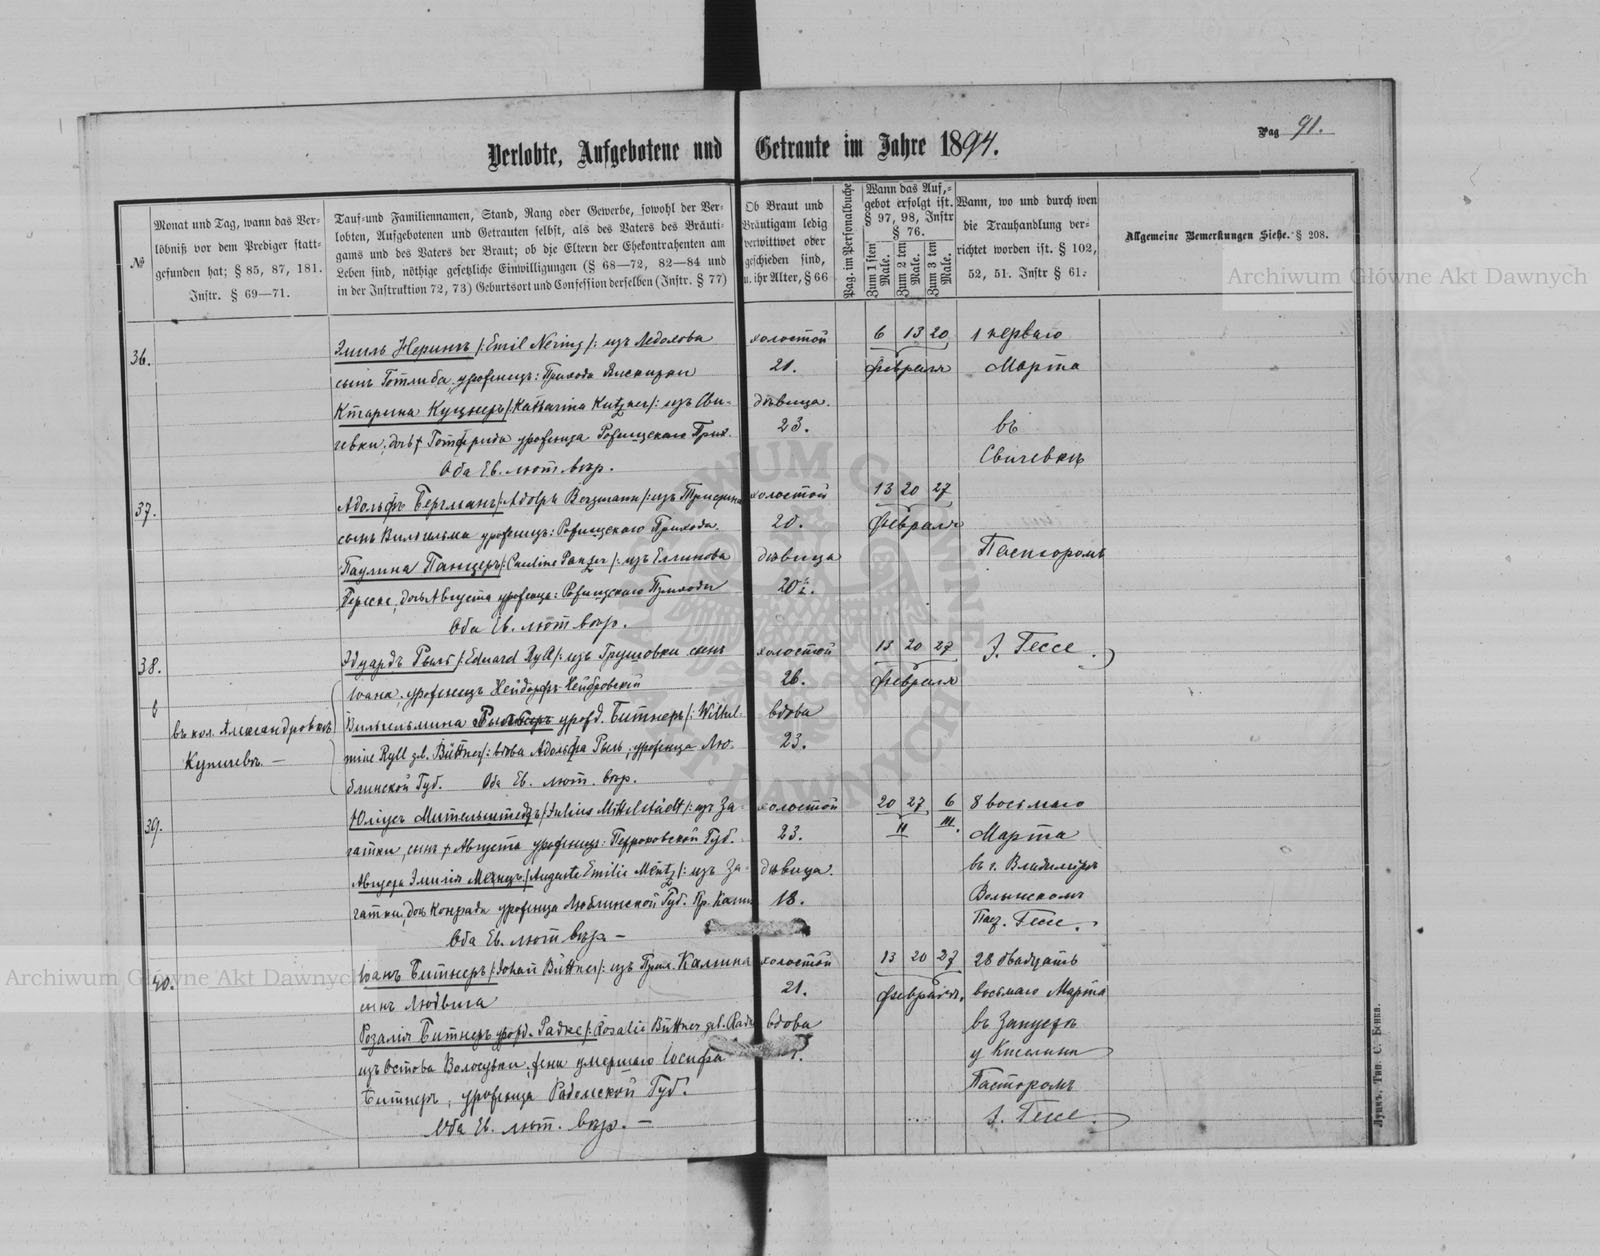 Pag 91.
Verlobte, Aufgebotene und Getraute im Jahre 1894.
№
Monat und Tag, wann das Ver-
löbniß vor dem Prediger statt-
gefunden hat; § 85, 87, 181.
Instr. § 69—71.
Tauf- und Familiennamen, Stand, Rang oder Gewerbe, sowohl der Ver-
lobten, Aufgebotenen und Getrauten selbst, als des Vaters des Bräuti-
gams und des Vaters der Braut; ob die Eltern der Ehekontrahenten am
Leben sind, nöthige gesetzliche Einwilligungen (§ 68—72, 82—84 und
in der Instruktion 72, 73) Geburtsort und Confession derselben (Instr. § 77)
Ob Braut und
Bräutigam ledig
verwittwet oder
geschieden sind,
u. ihr Alter, § 66
Pag. im Personalbuche
Wann das Auf-
gebot erfolgt ist.
§ 97, 98, Instr
§ 76.
Zum 1 ten Male.
Zum 2 ten Male.
Zum 3 ten Male.
Wann, wo und durch wen
die Trauhandlung ver-
richtet worden ist. § 102,
52, 51. Instr § 61.
Allgemeine Bemerkungen Siehe. § 208.
36.
Эмиль Нерингъ /: Emil Nering /: изъ
холостой
6 13 20
1 перваго
сынъ Готлиба, уроженецъ: Прихода
21.
февраля
Марта
Куцнеръ /: Katharina Kutzner /: изъ Сви-
дѣвица
чевки, дочь † Готфрида уроженца Рожищскаго Прих.
23.
въ
Оба Ев. лют. вѣр.
Свичевкѣ
37.
Адольфъ Бергманъ /: Adolph Bergmann /: изъ
холостой
13 20 27
сынъ Вильгельма уроженецъ: Рожищскаго Прихода.
20.
февраля
Паулина Панцеръ /: Pauline Panzer /: изъ
дѣвица
Пасторомъ
дочь Августа уроженца: Рожищскаго Прихода
20 ½.
Оба Ев. лют. вѣр.
38.
Эдуардъ Рыль /: Eduard Ryll /: изъ Грушовки сынъ
холостой
13 20 27
Э. Гессе.
Іоана, уроженецъ
26.
февраля
въ кол. Александровкѣ
Вильгельмина урожд. Битнеръ /: Wilhel-
вдова
Купичевъ. —
mine Ryll gb. Büttner /: вдова Адольфа Рыль, уроженца Лю-
23.
блинской Губ. Оба Ев. лют. вѣр.
39.
Юліусъ Мительштедтъ /: Julius Mittelstädt /: изъ За-
холостой
20 27 6
8 восьмаго
гатки, сынъ † Августа уроженецъ: Петроковской Губ.
23.
II III.
Марта
Августа Эмилія Менцъ /: Auguste Emilie Mentz /: изъ За-
дѣвица
въ г. Владимірѣ
гатки, дочь Конрада уроженца Люблинской Губ.
18.
Волынскомъ
Оба Ев. лют. вѣр. —
Паст. Гессе.
40.
Іоанъ Битнеръ /: Johan Büttner /: изъ
холостой
13 20 27
28 двадцать
сынъ Людвига
21.
февраля.
восьмаго Марта
Розалія Битнеръ урожд. Радке /: Rosalie Büttner gb. Radke
вдова
въ
изъ жена умершаго Іосифа
у
Битнеръ, уроженца Радомской Губ.
Пасторомъ
Оба Ев. лют. вѣр. —
Э. Гессе.
Луцкъ. Тип. С. Бенка.
Archiwum Główne Akt Dawnych
Archiwum Główne Akt Dawnych